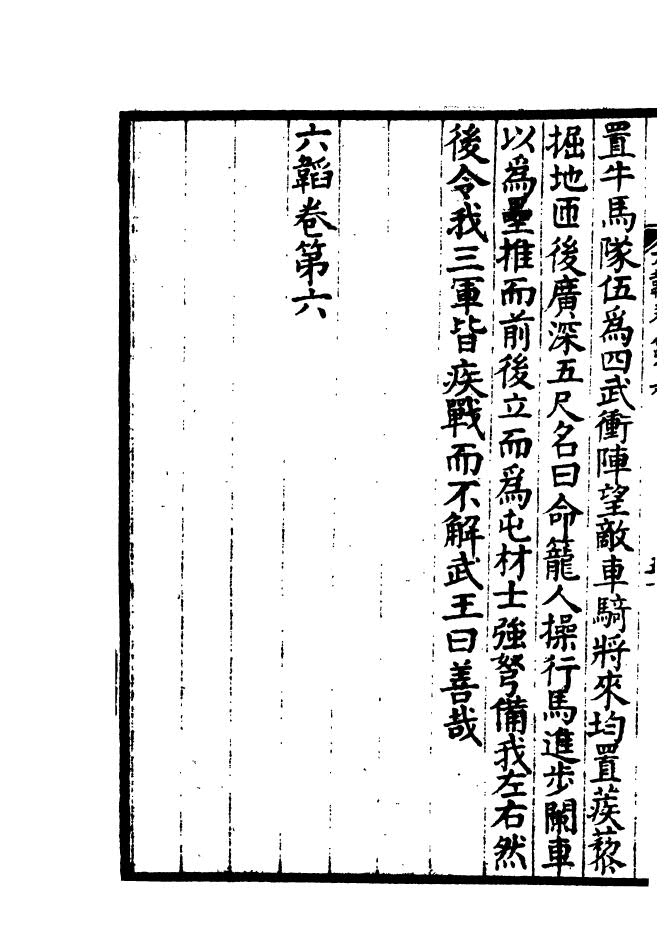 置牛馬隊伍爲四武衝陣望敵車騎將來均置蒺藜
掘地匝後廣深五尺名曰命籠人操行馬進步闌車
以爲壘推而前後立而爲屯材士強弩備我左右然
後令我三軍皆疾戰而不解武王曰善哉
六韜卷第六